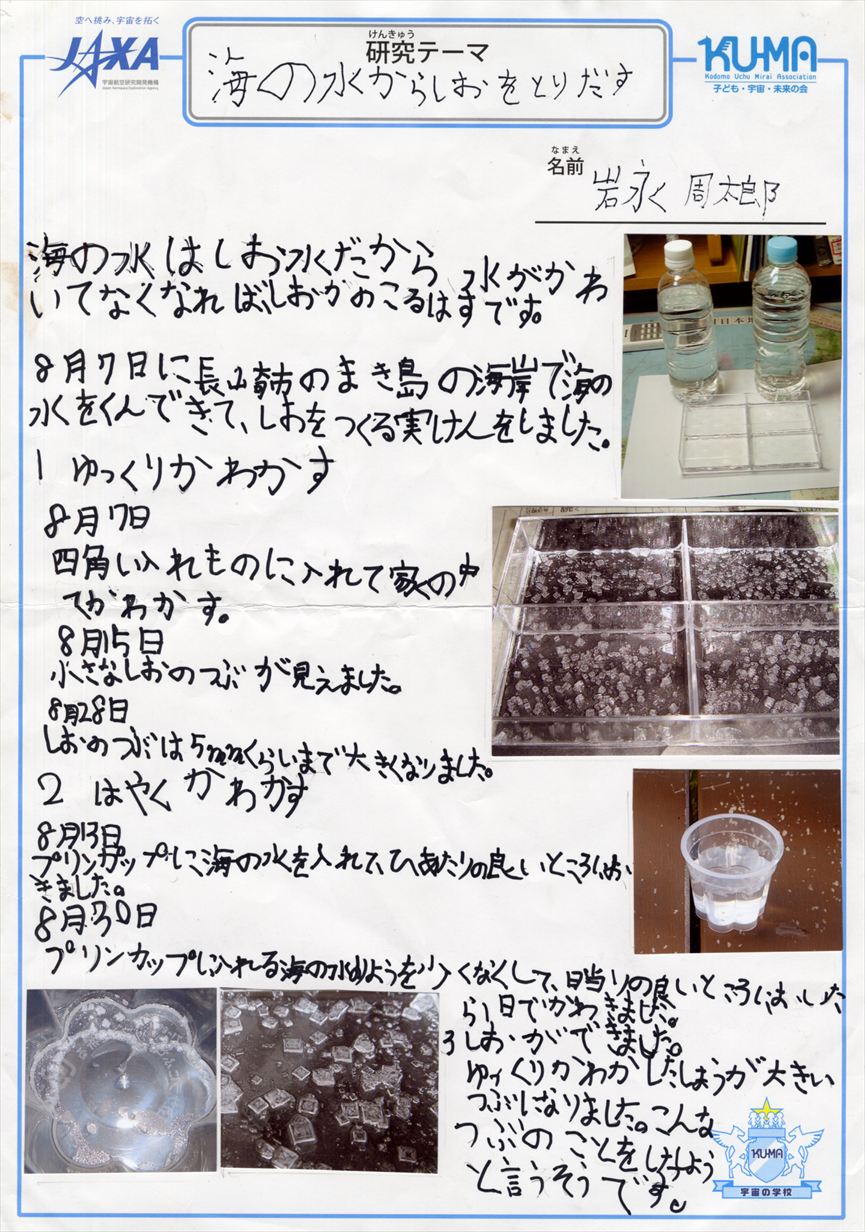 空へ挑み、宇宙を拓く
JAXA
宇宙航空研究開発機構
Japan Aerospace Exploration Agency
けんきゅう
研究テーマ
海の水からしおをとりだす
KU-MA
Kodomo Uchu Mirai Association
子ども・宇宙・未来の会
なまえ
名前
岩永 周太郎
海の水はしお水だから 水がかわ
いてなくなればしおがのこるはずです。
8月7日に長崎市のまき島の海岸で海の
水をくんできて、しおをつくる実けんをしました。
1 ゆっくりかわかす
8月7日
四角い入れものに入れて家の中
でかわかす。
8月15日
小さなしおのつぶが見えました。
8月28日
しおのつぶは5mmくらいまで大きくなりました。
2 はやくかわかす
8月13日
プリンカップに海の水を入れて、ひあたりの良いところにお
きました。
8月30日
プリンカップに入れる海の水のりょうを少くなくして、日当りの良いところにおいた
ら1日でかわきました。
3しおができました。
ゆっくりかわかしたしょうが大きい
つぶになりました。こんな
つぶのことをけっしょう
と言うそうです。
KU-MA
宇宙の学校